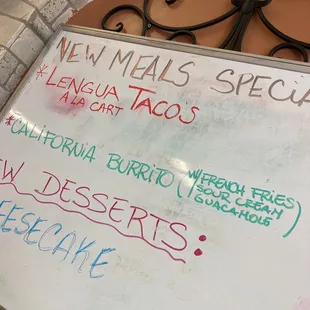 NEW MEALS SPECIA
* LENGUA TACOS
A LA CART
* CALIFORNIA BURRITO (W/FRENCH FRIES
SOUR CREAM
GUACAMOLE)
EW DESSERTS:
EESECAKE